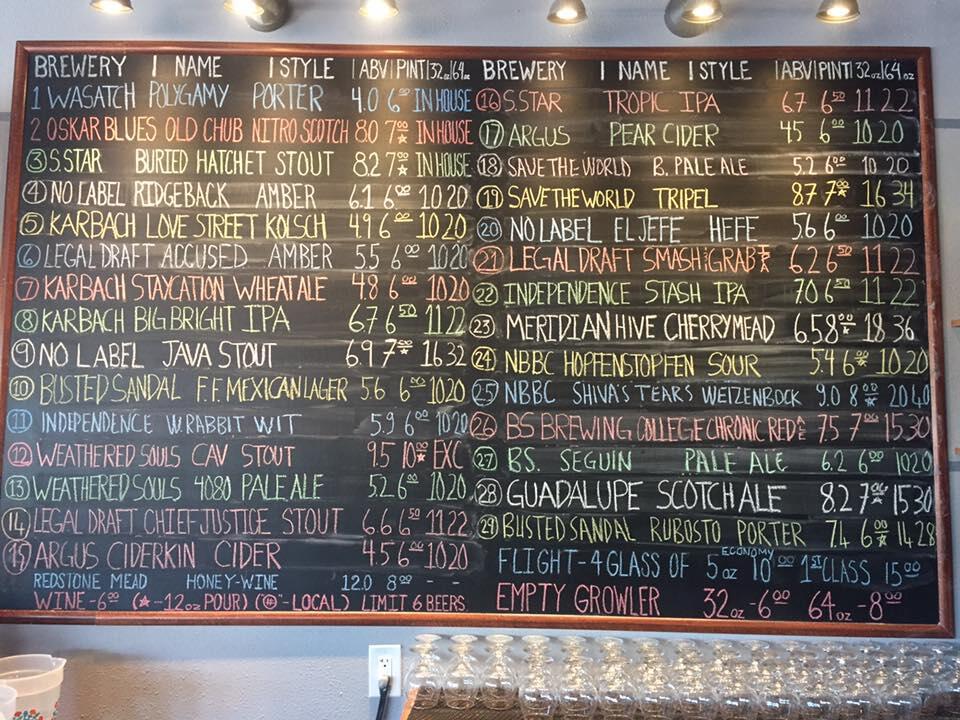 BREWERY | NAME | STYLE | ABV | PINT | 32oz | 64oz
1 WASATCH POLYGAMY PORTER 4.0 6⁰⁰ IN HOUSE
2 OSKAR BLUES OLD CHUB NITRO SCOTCH 8.0 7⁰⁰* IN HOUSE
3 S.STAR BURIED HATCHET STOUT 8.2 7⁰⁰* IN HOUSE
4 NO LABEL RIDGEBACK AMBER 6.1 6⁰⁰ 10 20
5 KARBACH LOVE STREET KOLSCH 4.9 6⁰⁰ 10 20
6 LEGAL DRAFT ACCUSED AMBER 5.5 6⁰⁰ 10 20
7 KARBACH STAYCATION WHEAT ALE 4.8 6⁰⁰ 10 20
8 KARBACH BIG BRIGHT IPA 6.7 6⁵⁰ 11 22
9 NO LABEL JAVA STOUT 6.9 7⁰⁰* 16 32
10 BUSTED SANDAL F.F. MEXICAN LAGER 5.6 6⁰⁰ 10 20
11 INDEPENDENCE W.RABBIT WIT 5.9 6⁰⁰ 10 20
12 WEATHERED SOULS CAV STOUT 9.5 10⁰⁰* EXC
13 WEATHERED SOULS 4080 PALE ALE 5.2 6⁰⁰ 10 20
14 LEGAL DRAFT CHIEF JUSTICE STOUT 6.6 6⁵⁰ 11 22
15 ARGUS CIDERKIN CIDER 4.5 6⁰⁰ 10 20
REDSTONE MEAD HONEY-WINE 12.0 8⁰⁰ - -
WINE - 6⁰⁰ (* - 12oz POUR) ("#" - LOCAL) LIMIT 6 BEERS
BREWERY | NAME | STYLE | ABV | PINT | 32oz | 64oz
16 S.STAR TROPIC IPA 6.7 6⁵⁰ 11 22
17 ARGUS PEAR CIDER 4.5 6⁰⁰ 10 20
18 SAVE THE WORLD B. PALE ALE 5.2 6⁰⁰ 10 20
19 SAVE THE WORLD TRIPEL 8.7 7⁰⁰* 16 34
20 NO LABEL EL JEFE HEFE 5.6 6⁰⁰ 10 20
21 LEGAL DRAFT SMASH GRAB 6.2 6⁵⁰ 11 22
22 INDEPENDENCE STASH IPA 7.0 6⁵⁰ 11 22
23 MERIDIAN HIVE CHERRY MEAD 6.5 8⁰⁰* 18 36
24 NBBC HOPFENSTOPFEN SOUR 5.4 6⁰⁰* 10 20
25 NBBC SHIVA'S TEARS WEIZENBOCK 9.0 8⁰⁰* 20 40
26 BS BREWING COLLEGE CHRONIC RED ALE 7.5 7⁰⁰ 15 30
27 BS. SEGUIN PALE ALE 6.2 6⁰⁰ 10 20
28 GUADALUPE SCOTCH ALE 8.2 7⁰⁰* 15 30
29 BUSTED SANDAL ROBUSTO PORTER 7.4 6⁰⁰* 14 28
FLIGHT - 4 GLASS OF 5oz ECONOMY 10⁰⁰ 1ST CLASS 15⁰⁰
EMPTY GROWLER 32oz - 6⁰⁰ 64oz - 8⁰⁰